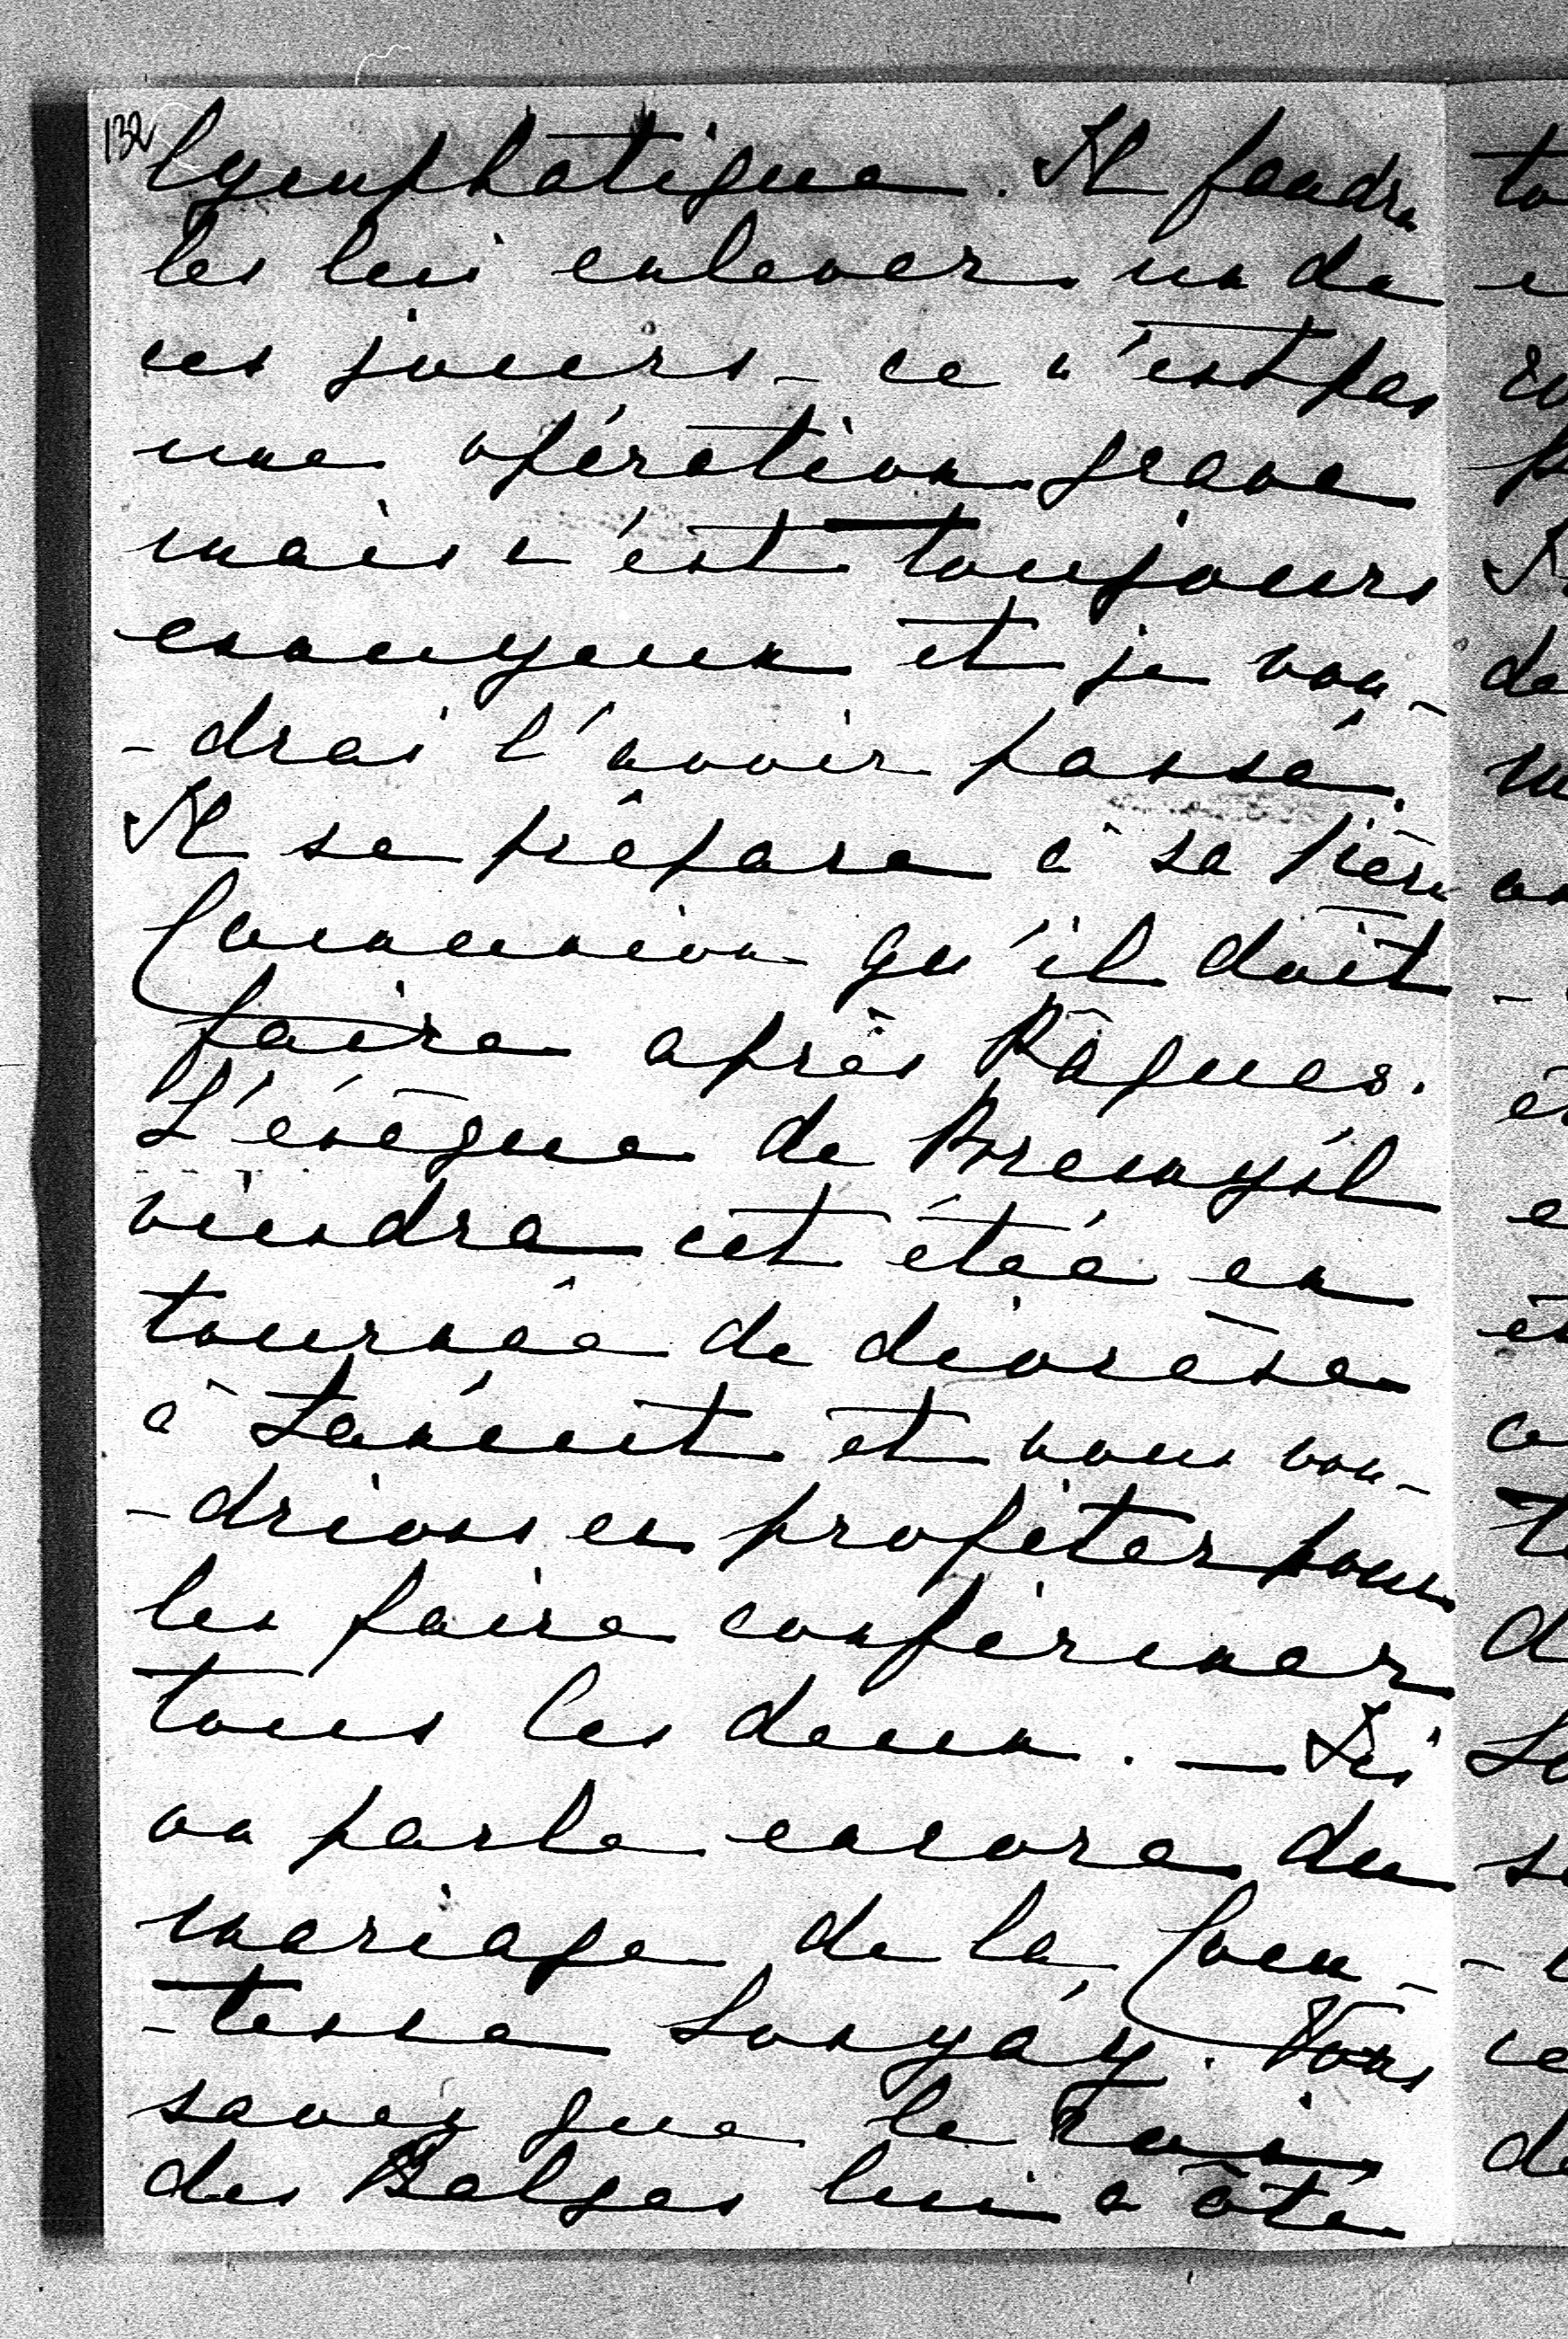 132
lymphatique. Il faudra
les lui enlever un de
ces jours - ce n'est pas
une opération grave
mais c'est toujours
ennuyeux et je vou-
-drai l'avoir passé.
Il se prépare à sa 1ière
Communion qu'il doit
faire après Pâques.
L'évêque de Przemyśl
viendra cet été en
tournée de diocèse
à Łańcut et nous vou-
-drions en profiter pour
les faire confirmer
tous les deux. — Ici
on parle encore du
mariage de la Com-
-tesse Lonyáy. Vous
savez que le roi
des Belges lui a ôté